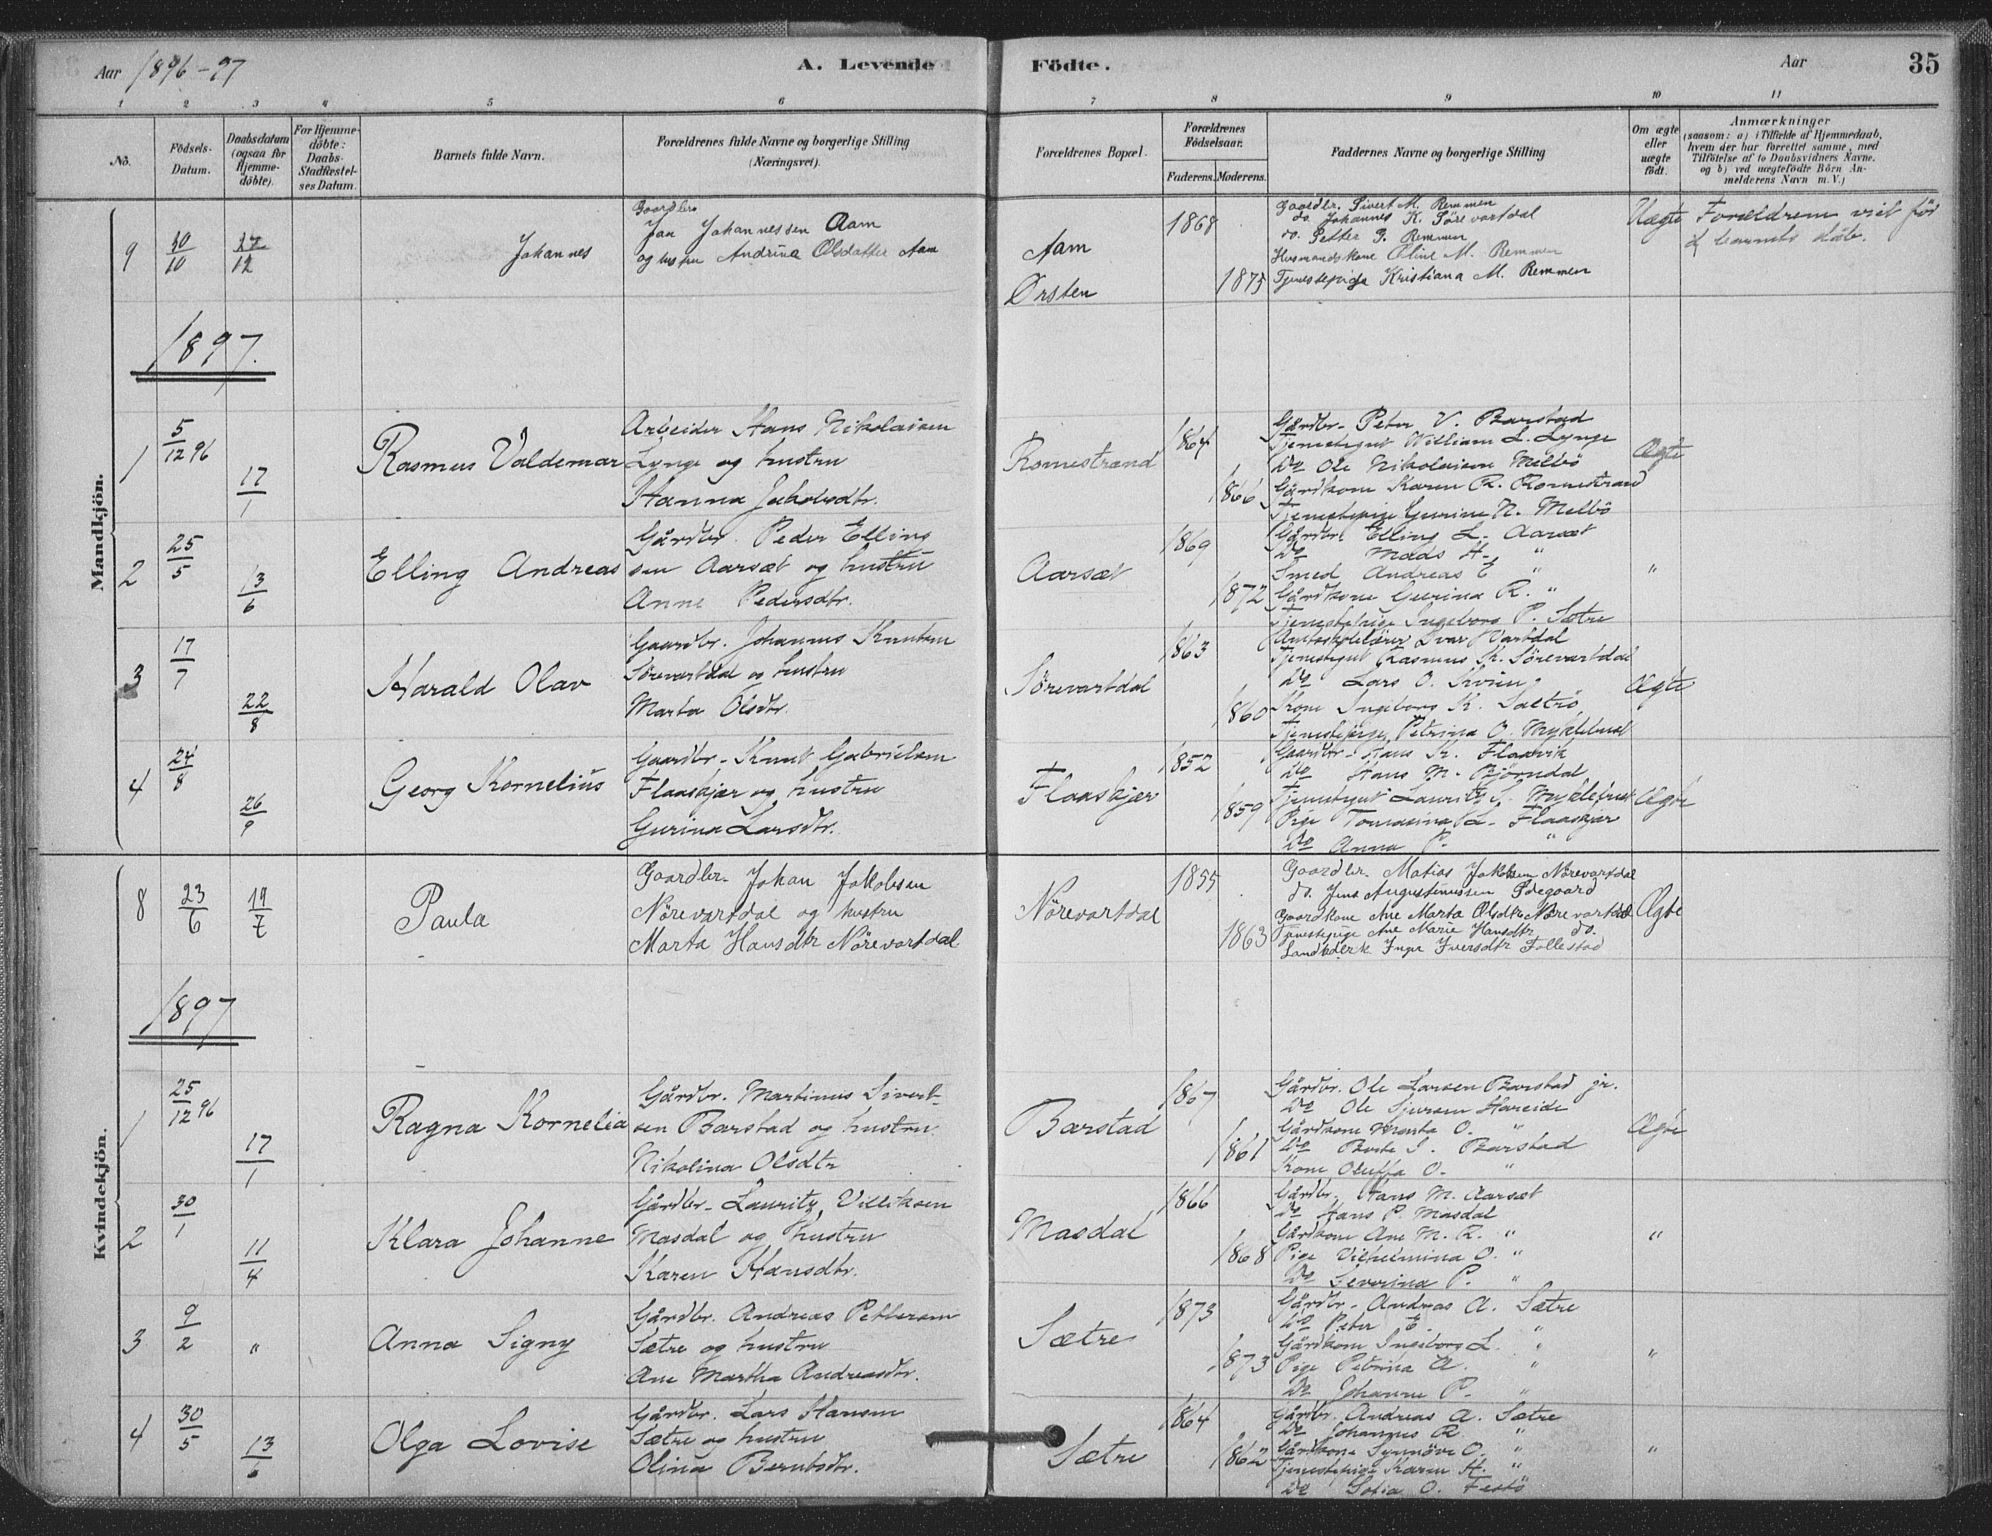 Aar 1896-97 A. Levende Födte. Aar 35
1 2 3 4 5 6 7 8 9 10 11
No. Födsels-Datum. Daabsdatum (ogsaa for Hjemme-döbte). For Hjemme-döbte: Daabs-Stadfæstel-ses Datum. Barnets fulde Navn. Forældrenes fulde Navne og borgerlige Stilling (Næringsvei). Forældrenes Bopæl. Forældrenes Födselsaar. Faderens. Moderens. Faddernes Navne og borgerlige Stilling Om ægte eller uægte födt. Anmærkninger (saasom: a) i Tilfælde af Hjemmedaab, hvem der har forrettet samme, med Tilföielse af to Daabsvidners Navne, og b) ved uægtefödte Börn An-melderens Navn m. V.)
Mandkjön.
9 30/10 27/12 Johannes
Gaardbr.
Jon Johannessen Aam
og hustru Andrina Olsdatter Aam
Aam
Ørsten
1868
1875
Gaardbr. Sivert M. Remmen
do. Johannes K. Sörevartdal
do. Petter P. Remmen
Husmandskone Oline M. Remmen
Tjenestepige Kristiana M. Remmen
Uægte Forældrene viet før
barnets dåb.
1897.
1 5/12 96 17/1 Rasmus Valdemar
Arbeider Hans Nikolaisen
Lynge og hustru
Hanna Jakobsdtr.
Romestrand
1864
1866
Gårdbr. Peter V. Barstad
Tjenestegut William L. Lynge
Do Ole Nikolaisen Melbö
Gårdkone Karen R. Romestrand
Tjenestepige Gurine N. Melbö
Ægte
2 25/5 13/6 Elling Andreas
Gårdbr. Peder Elling
sen Aarsæt og hustru
Anne Pedersdtr.
Aarsæt
1869
1872
Gårdbr. Elling L. Aarsæt
Do Mads H. "
Smed Andreas E "
Gårdkone Gurina R. "
Tjenestepige Ingeborg P. Sætre
"
3 17/7 22/8 Harald Olav
Gaardbr. Johannes Knutsen
Sörevartdal og hustru
Marta Olsdtr.
Sörevartdal
1863
1860
Amtsskolelærer Ivar Vartdal
Tjenestegut Rasmus K. Sörevartdal
Do Lars O. Kvien
Kone Ingeborg K. Sætre
Tjenestepige Petrina O. Myklebust
Ægte
4 24/8 26/9 Georg Kornelius
Gaardbr. Knut Gabrielsen
Flaaskjær og hustru
Gurina Larsdtr.
Flaaskjær
1852
1859
Gaardbr. Hans K. Flaavik
Do Hans M. Bjørndal
Tjenestegut Lauritz S. Myklebust
Pige Tomasina L. Flaaskjær
Do Anna P. "
Ægte
Kvindekjön.
8 23/6 19/7 Paula
Gaardbr. Johan Jakobsen
Nörevartdal og hustru
Marta Hansdtr Nörevartdal
Nörevartdal
1855
1863
Gaardbr. Matias Jakobsen Nörevartdal
do. Jens Augustinussen Ødegaard
Gaardkone Ane Marta Olsdtr Nörevartdal
Tjenestepige Ane Marie Hansdtr do.
Inger Iversdtr Follestad
Ægte
1897
1 25/12 96 17/1 Ragna Kornelia
Gårdbr. Martinus Sivert-
sen Barstad og hustru
Nikolina Olsdtr
Barstad
1867
1861
Gårdbr. Ole Larsen Barstad jr.
Do Ole Sjursen Hareide
Gårdkone Marta O. "
Do Berte S. Barstad
Kone Oluffa O. "
Ægte
2 30/1 11/4 Klara Johanne
Gårdbr. Lauritz Villiksen
Masdal og hustru
Karen Hansdtr.
Masdal
1866
1868
Gårdbr. Hans M. Aarsæt
Do Hans P. Masdal
Gårdkone Ane M. R. "
Pige Vilhelmina O. "
Do Severina P. "
"
3 9/2 " Anna Signy
Gårdbr. Andreas Pettersen
Sætre og hustru
Ane Martha Andreasdtr.
Sætre
1873
1873
Gårdbr. Andreas A. Sætre
Do Peter E. "
Gårdkone Ingeborg L. "
Pige Petrina A. "
Do Johanne P. "
"
4 30/5 13/6 Olga Lovise
Gårdbr. Lars Hansen
Sætre og hustru
Olina Berntsdtr.
Sætre
1864
1862
Gårdbr. Andreas A. Sætre
Do Johannes R. "
Gårdkone Synnöve O. "
Tjenestepige Karen H. "
Do Sofia O. Festö
"